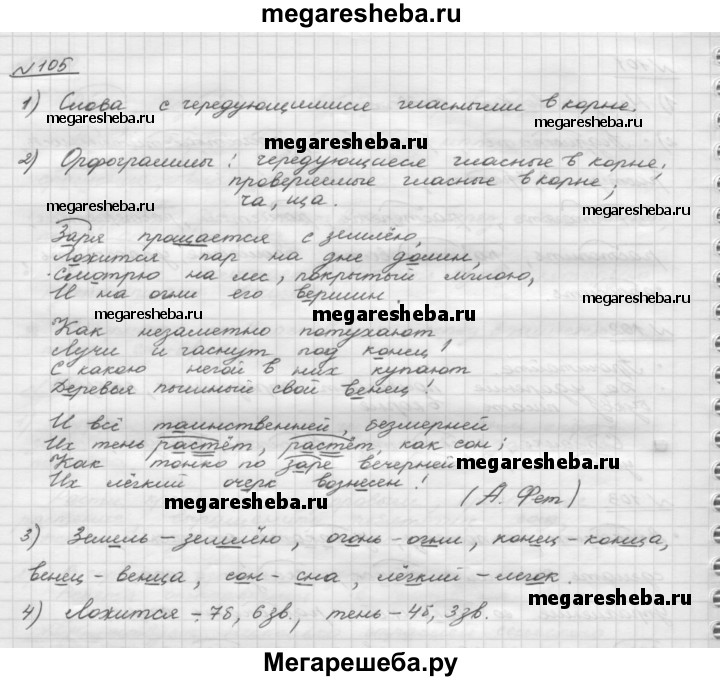 megaresheba.ru
№105
1) Слова с чередующимися гласными в корне.
megaresheba.ru
megaresheba.ru
megaresheba.ru
2) Орфограммы: чередующиеся гласные в корне;
проверяемые гласные в корне;
ча, ща.
megaresheba.ru
megaresheba.ru
Заря прощается с землёю,
Ложится пар на дне долин,
Смотрю на лес, покрытый мглою,
И на огни его вершин.
megaresheba.ru
megaresheba.ru
megaresheba.ru
Как незаметно потухают
Лучи и гаснут под конец!
С какою негой в них купают
Деревья пышный свой венец!
И всё таинственней, безмерней
Их тень растёт, растёт, как сон;
Как тонко по заре вечерней
megaresheba.ru
Их лёгкий очерк вознесен!
megaresheba.ru
(А. Фет)
3) Земель – землёю, огонь – огни, конец – конца,
венец – венца, сон – сна, лёгкий – легок.
megaresheba.ru
4) Ложится – 7б, 6зв., тень – 4б, 3зв.
Мегарешеба.ру